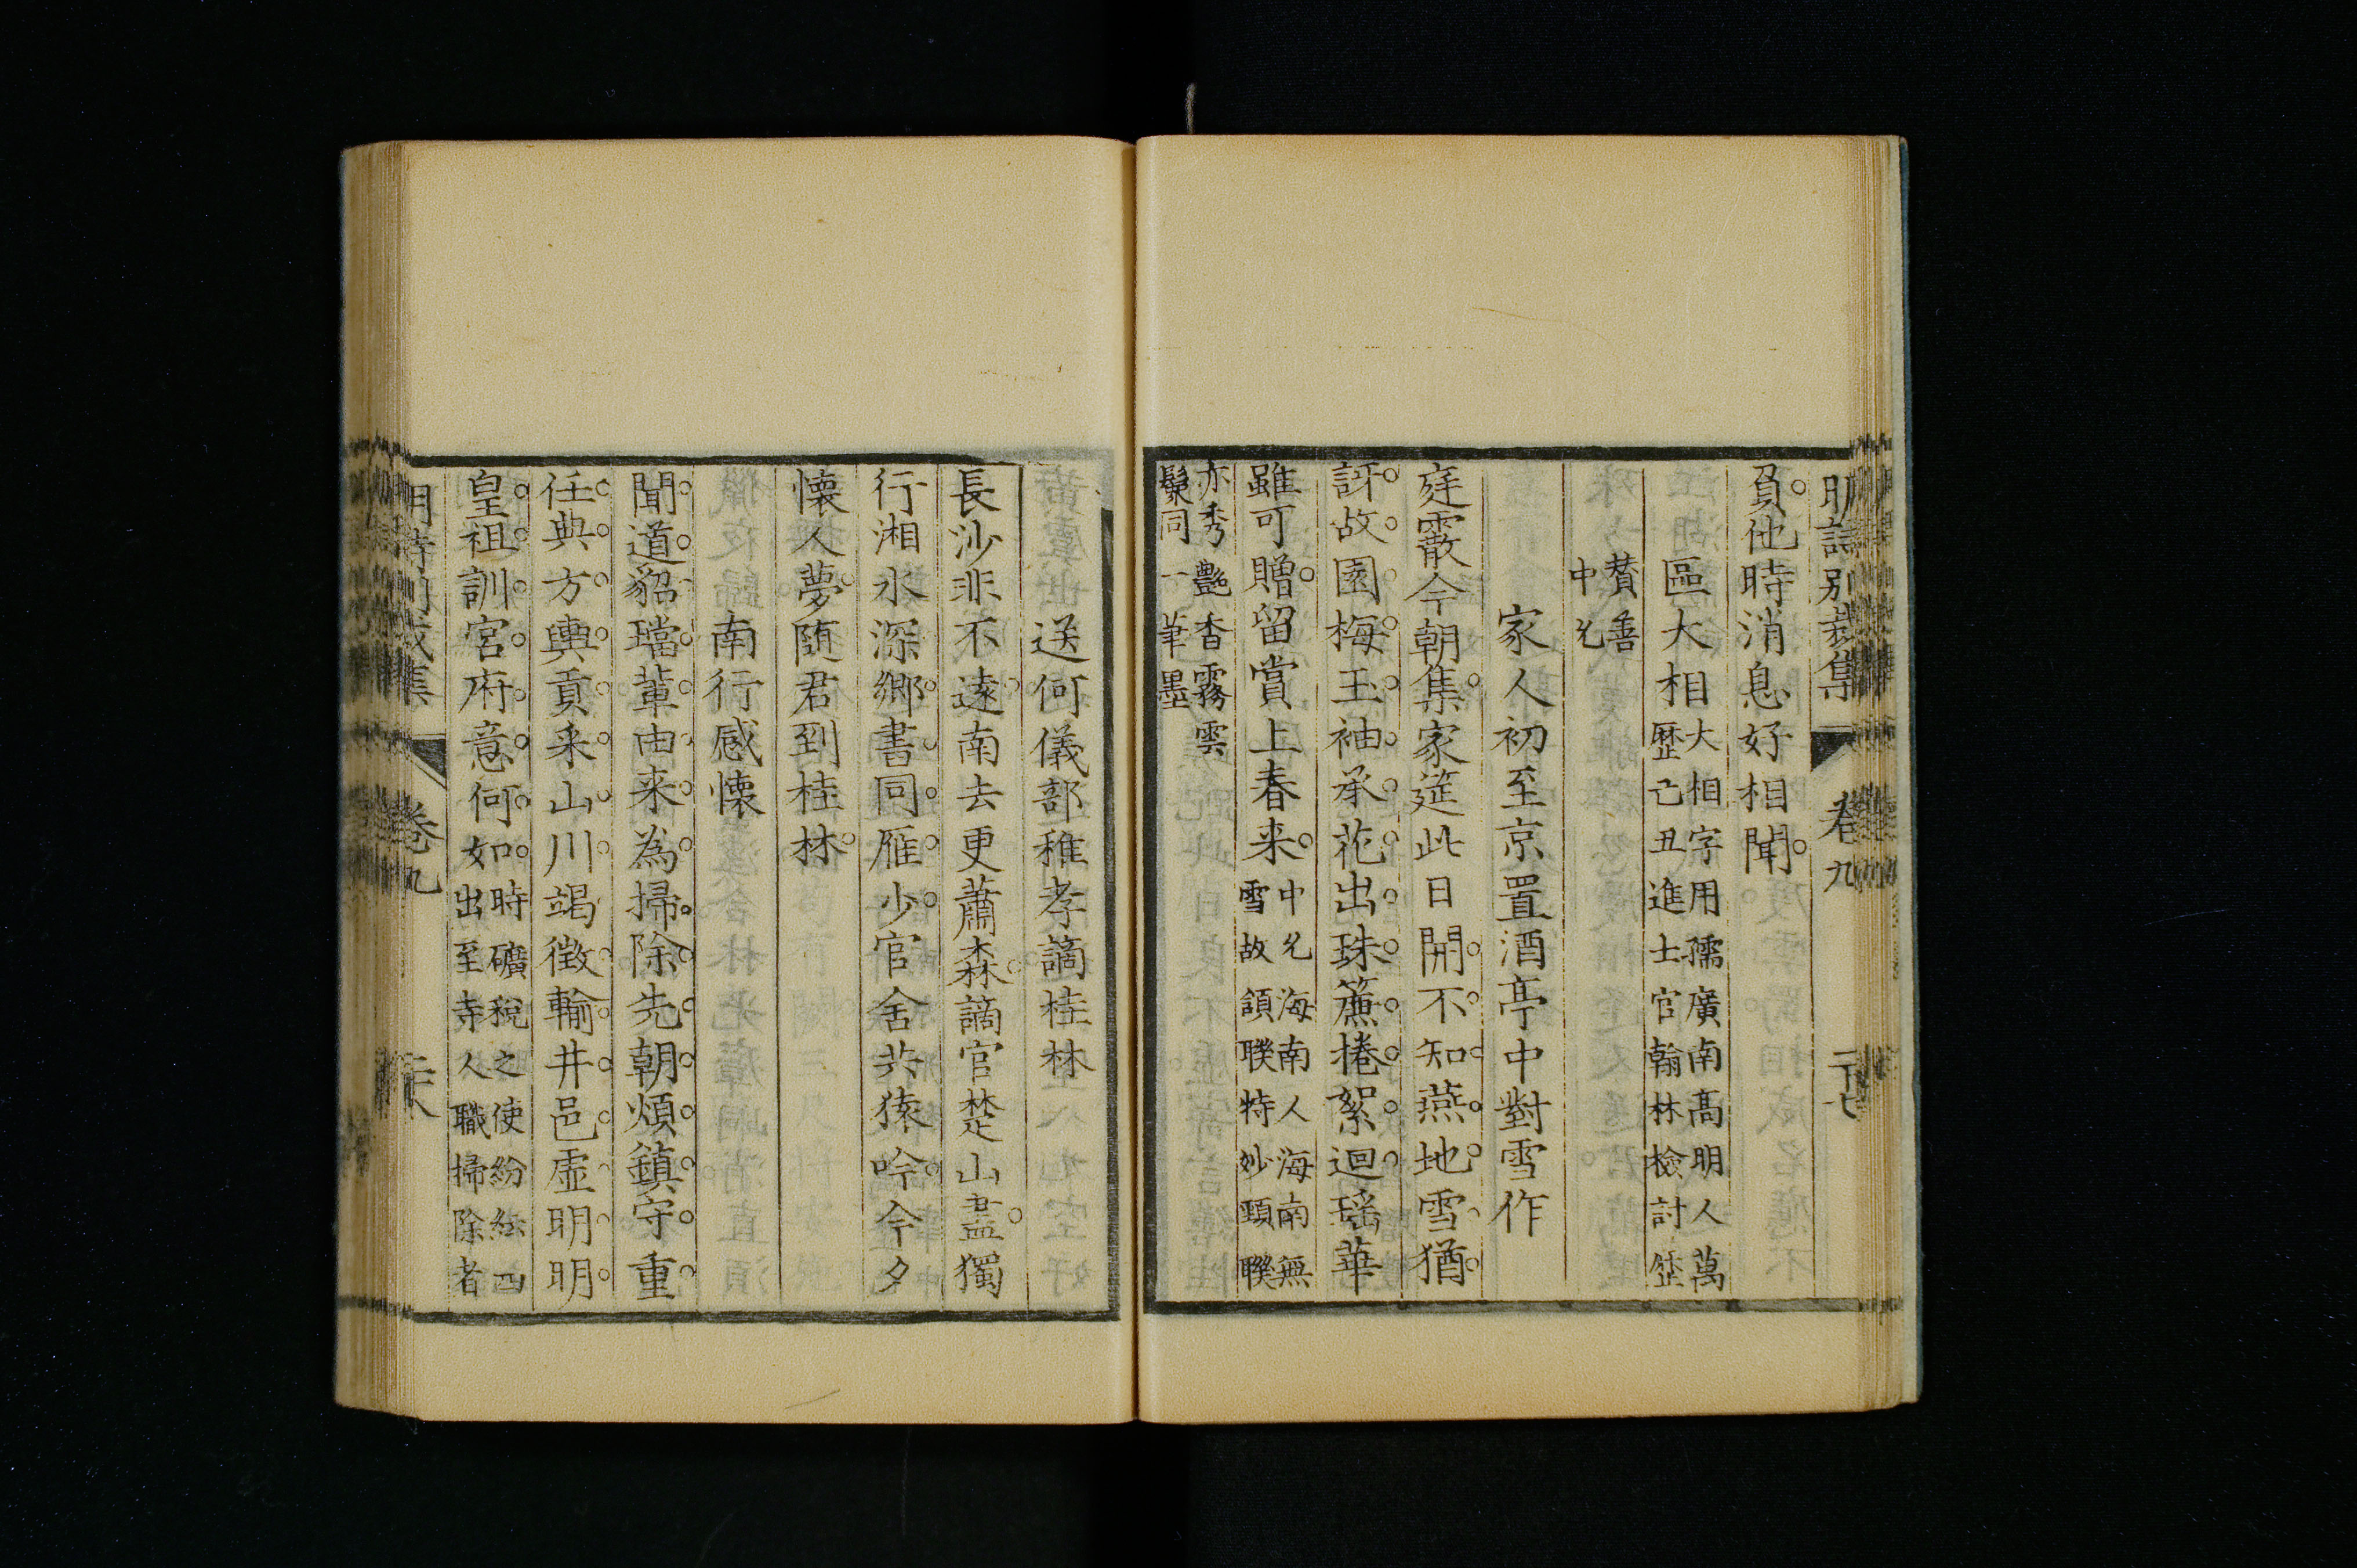 明詩別裁集 卷九 二十七
負他時消息好相聞
區大相大相字用孺廣南高明人萬
歷己丑進士官翰林檢討歷
贊善
中允
家人初至京置酒亭中對雪作
庭霰今朝集家筵此日開不知燕地雪猶
訝故園梅玉袖承花出珠簾捲絮迴瑤華
雖可贈留賞上春来中允海南人海南無
雪故頷聯特妙頸聯
亦秀艷香霧雲
鬟同一筆墨
送何儀部稚孝謫桂林
長沙非不遠南去更蕭森謫官楚山盡獨
行湘水深鄉書同雁少官舍共猿吟今夕
懷人夢随君到桂林
南行感懷
聞道貂璫輩由来為掃除先朝煩鎮守重
任典方輿貢采山川竭徵輸井邑虛明明
皇祖訓宮府意何如時礦稅之使紛紜四
出至寺人職掃除者
明詩別裁集 卷九